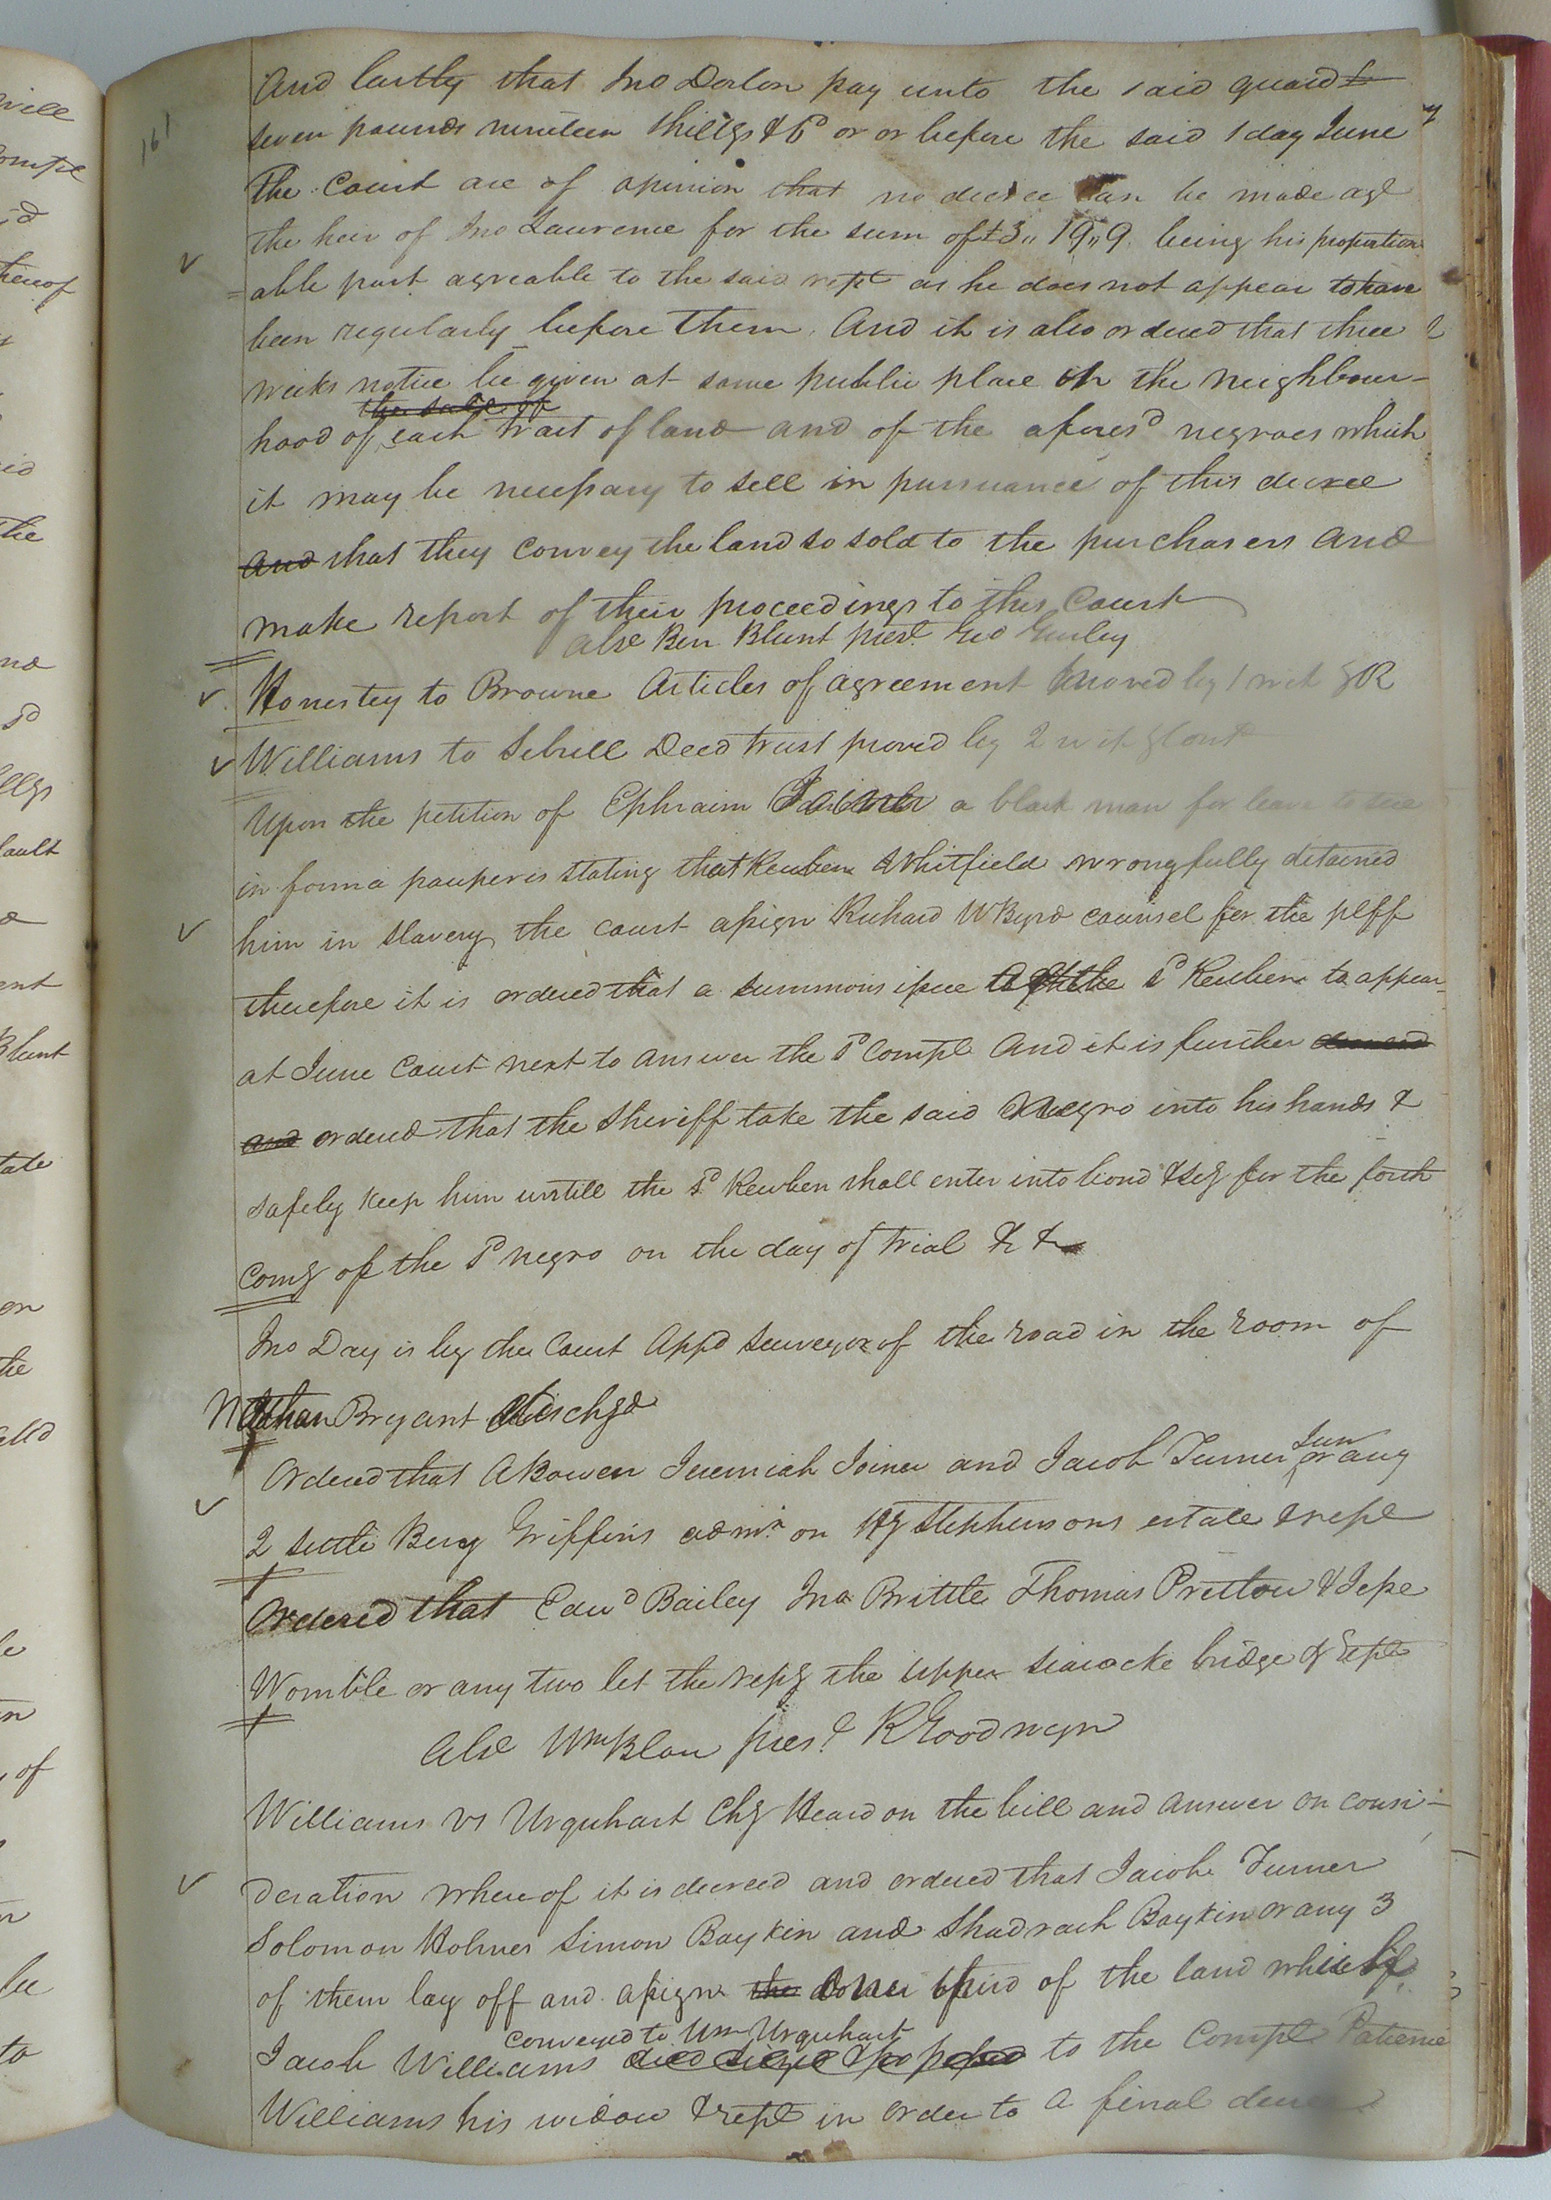 And lastly that Jno Dorlon pay unto the said guard
seven pounds nineteen Shillgs & 6d or or before the said 1 day June
161
The Court are of opinion that no decree can be made agt
the heir of Jno Laurence for the sum of £3,, 19,, 9 being his proportion
able part agreable to the said rept as he does not appear to have
been regularly before them. And it is also ordered that three
weeks notice be given at some public place in the neighbour-
the sale of
hood of each tract of land and of the aforesd negroes which
it may be necessary to sell in pursuance of this decree
and that they convey the land so sold to the purchasers and
make report of their proceedings to this Court
Also Ben Blunt prest Geo Gurley
Honestey to Browne Articles of agreement proved by 1 wit & R
Williams to Sebrell Deed trust proved by 2 wits & cont
Upon the petition of Ephraim a black man for leave to sue
in forma pauperis stating that Reuben Whitfield wrongfully detained
him in slavery, the court assign Richard W Byrd counsel for the plff
therefore it is ordered that a summons issue the sd Reuben to appear
at June Court next to answer the sd Complt and it is further
and ordered that the Sheriff take the said Negro into his hands &
safely keep him untill the sd Reuben shall enter into bond & scy for the forth
comg of the sd negro on the day of trial &c &c
Jno Day is by the Court Appd surveyor of the road in the room of
Nathan Bryant dischgd
Jun
Ordered that A Bowen Jeremiah Joiner and Jacob Turner or any
2 settle Benj Griffins admn on Hy Stephensons estate & rept
Ordered that Edwd Bailey Jno Brittle Thomas Pretlow & Jesse
Womble or any two let the repg the upper seacocke bridge & rept
Also Wm Blow prest R Goodwyn
Williams vs Urquhart Chy Heard on the bill and answer on consi-
deration whereof it is decreed and ordered that Jacob Turner
Solomon Holmes Simon Boykin and Shadrach Boykin or any 3
of them lay off and assign the one third of the land which
conveyed to Wm Urquhart
Jacob Williams died siezed & possessed to the Complt Patience
Williams his widow & rept in order to a final decree